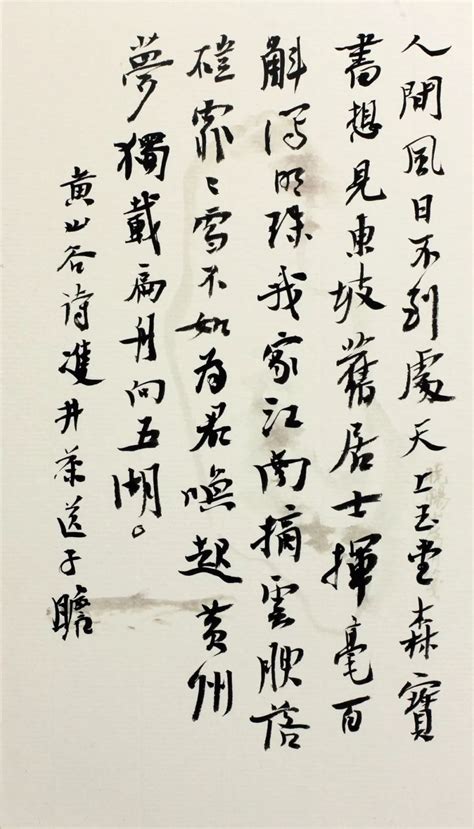 人間風日不到處天上玉堂森寶
書想見東坡舊居士揮毫百
斛瀉明珠我家江南摘雲腴落
磑霏〻雪不如為君喚起黄州
夢獨載扁舟向五湖。
黄山谷詩雙井茶送子瞻